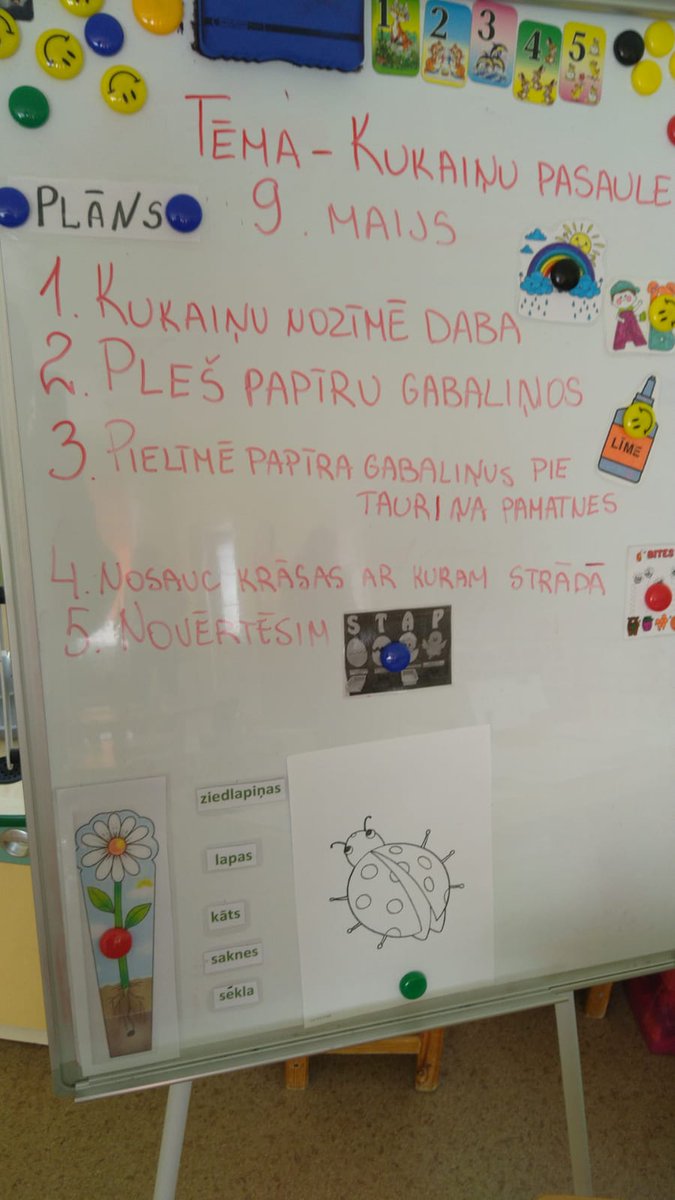 1 2 3 4 5
TĒMA - KUKAIŅU PASAULE
PLĀNS
9. MAIJS
1. KUKAIŅU NOZĪMĒ DABA
2. PLEŠ PAPĪRU GABALIŅOS
3. PIELĪMĒ PAPĪRA GABALIŅUS PIE
TAURIŅA PAMATNES
LĪME
4. NOSAUC KRĀSAS AR KURAM STRĀDĀ
BITES
5. NOVĒRTĒSIM
S T A P
ziedlapiņas
lapas
kāts
saknes
sēkla